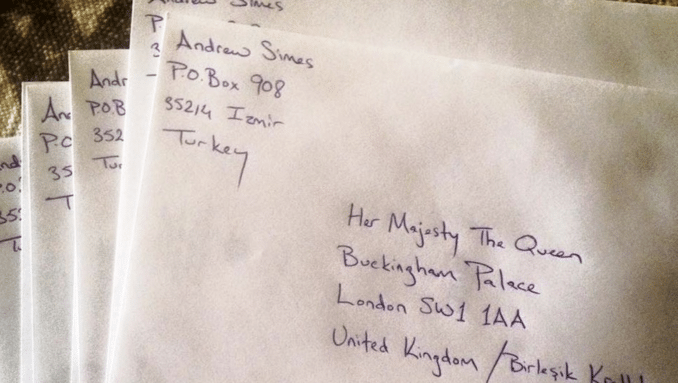 Andrew Simes
P.O. Box 908
35214 Izmir
Turkey
Her Majesty The Queen
Buckingham Palace
London SW1 1AA
United Kingdom / Birleşik
Andrew Simes
P.
3
Andr
P.O.B
352
Tur
An
P.O
35
T